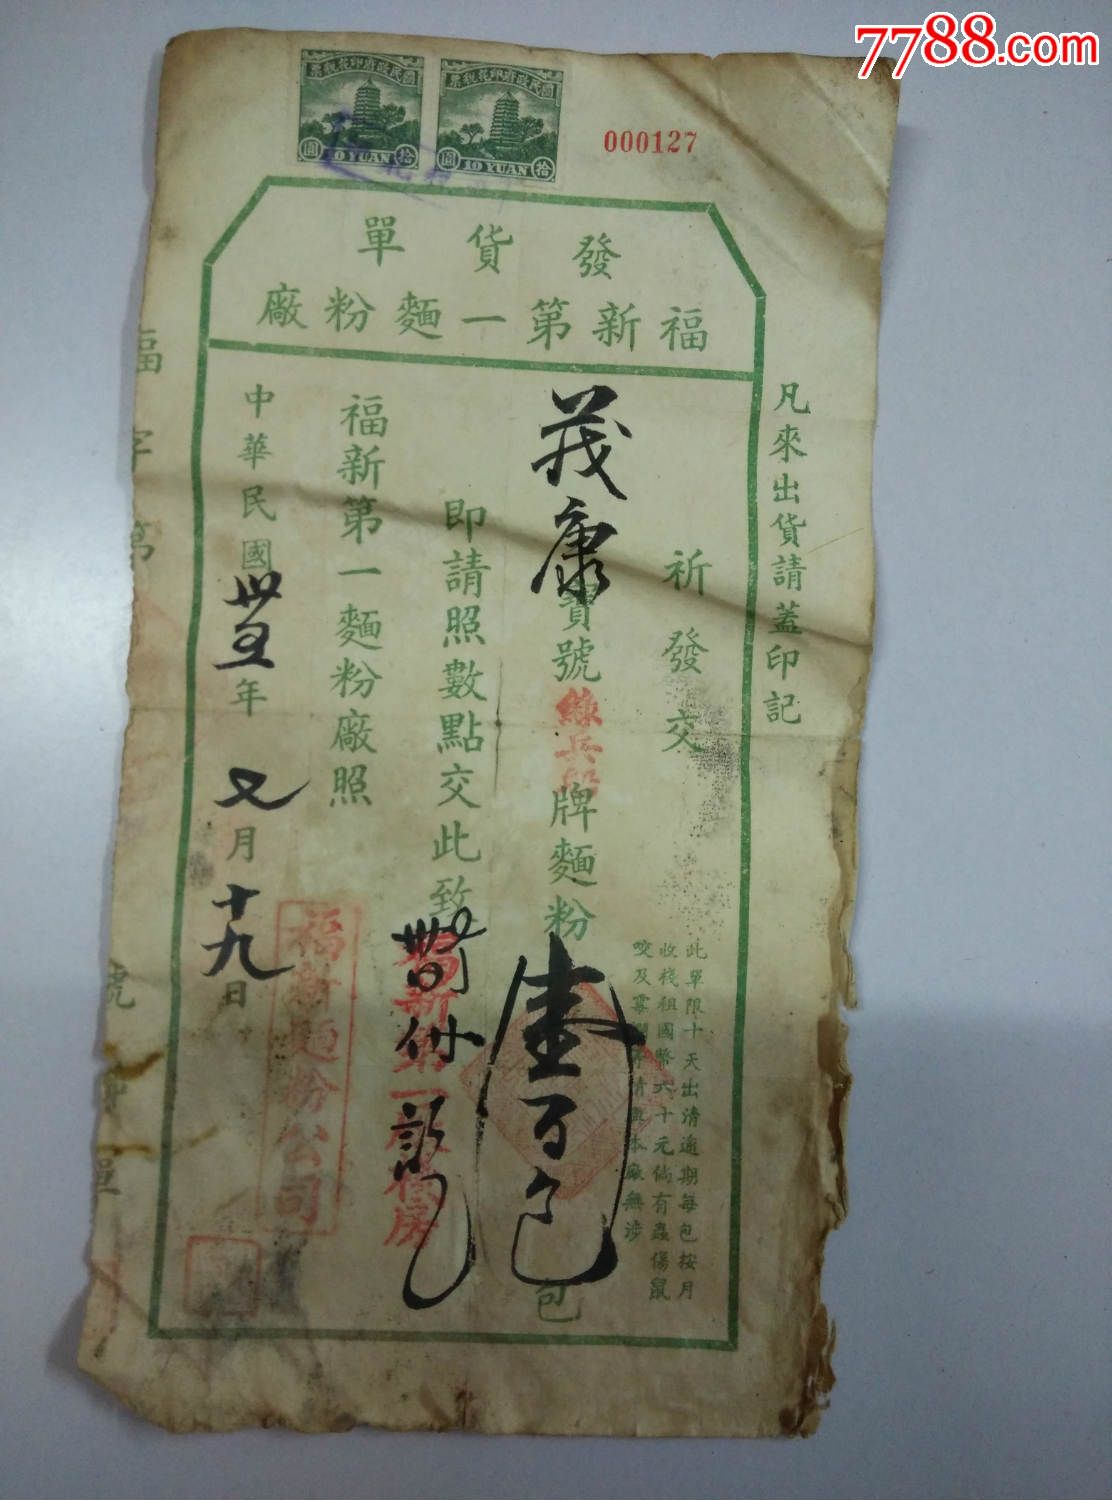 7788.com
國民政府印花稅票
拾 10 YUAN 圓
國民政府印花稅票
拾 10 YUAN 圓
000127
發貨單
福新第一麵粉廠
凡來出貨請蓋印記
祈發交
茂康
寶號練兵船牌麵粉
壹百包
包
此單限十天出清逾期每包按月
收棧租國幣六十元倘有蟲傷鼠
咬及霉爛等情與本廠無涉
即請照數點交此致
福新第一麵粉廠照
福新麵粉公司
中華民國卅五年又月十九日
福字第 號 單